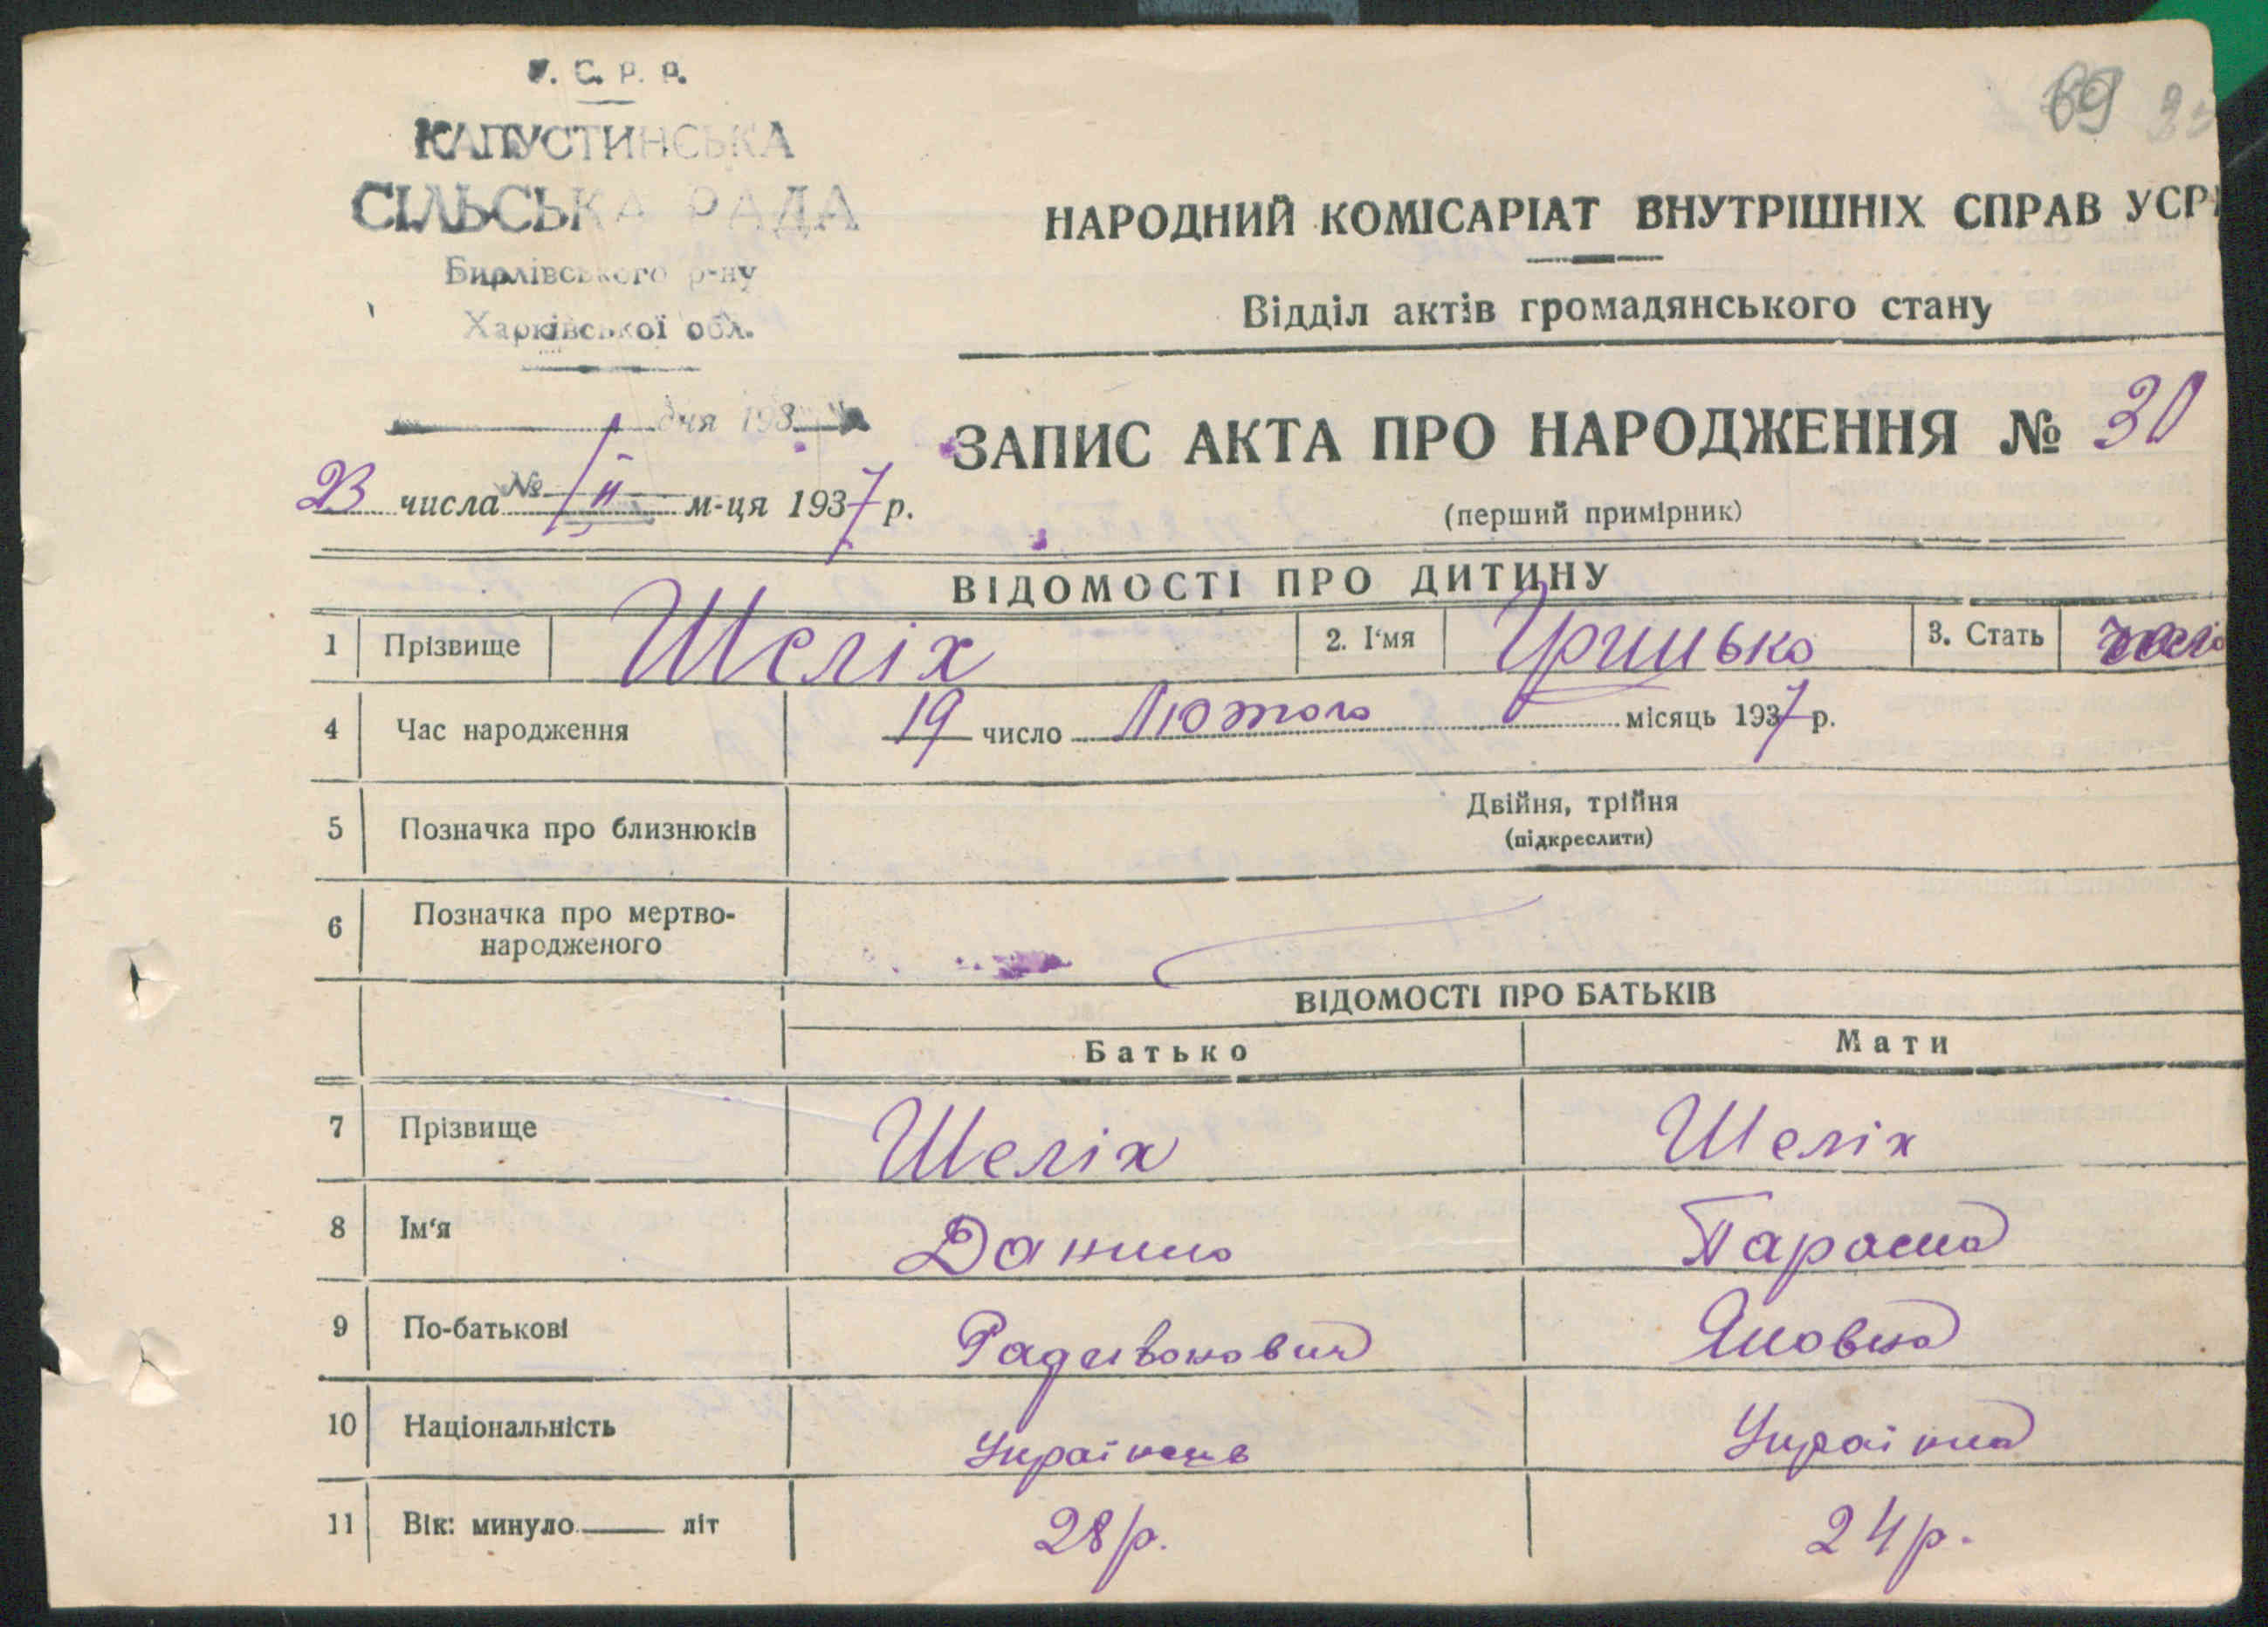 У. С. Р. Р.
КАПУСТИНСЬКА
СІЛЬСЬКА РАДА
Бирлівського р-ну
Харківської обл.
дня 193
№
69
НАРОДНИЙ КОМІСАРІАТ ВНУТРІШНІХ СПРАВ УСР
Відділ актів громадянського стану
ЗАПИС АКТА ПРО НАРОДЖЕННЯ № 30
(перший примірник)
23 числа II м-ця 1937 р.
ВІДОМОСТІ ПРО ДИТИНУ
1 Прізвище Шеліх 2. І'мя Грицько 3. Стать
4 Час народження 19 число Лютого місяць 1937 р.
5 Позначка про близнюків Двійня, трійня
(підкреслити)
6 Позначка про мертво-
народженого
ВІДОМОСТІ ПРО БАТЬКІВ
Батько Мати
7 Прізвище Шеліх Шеліх
8 Ім'я Данило Параска
9 По-батькові Радивонович Яковна
10 Національність Українець Українка
11 Вік: минуло літ 28 р. 24 р.